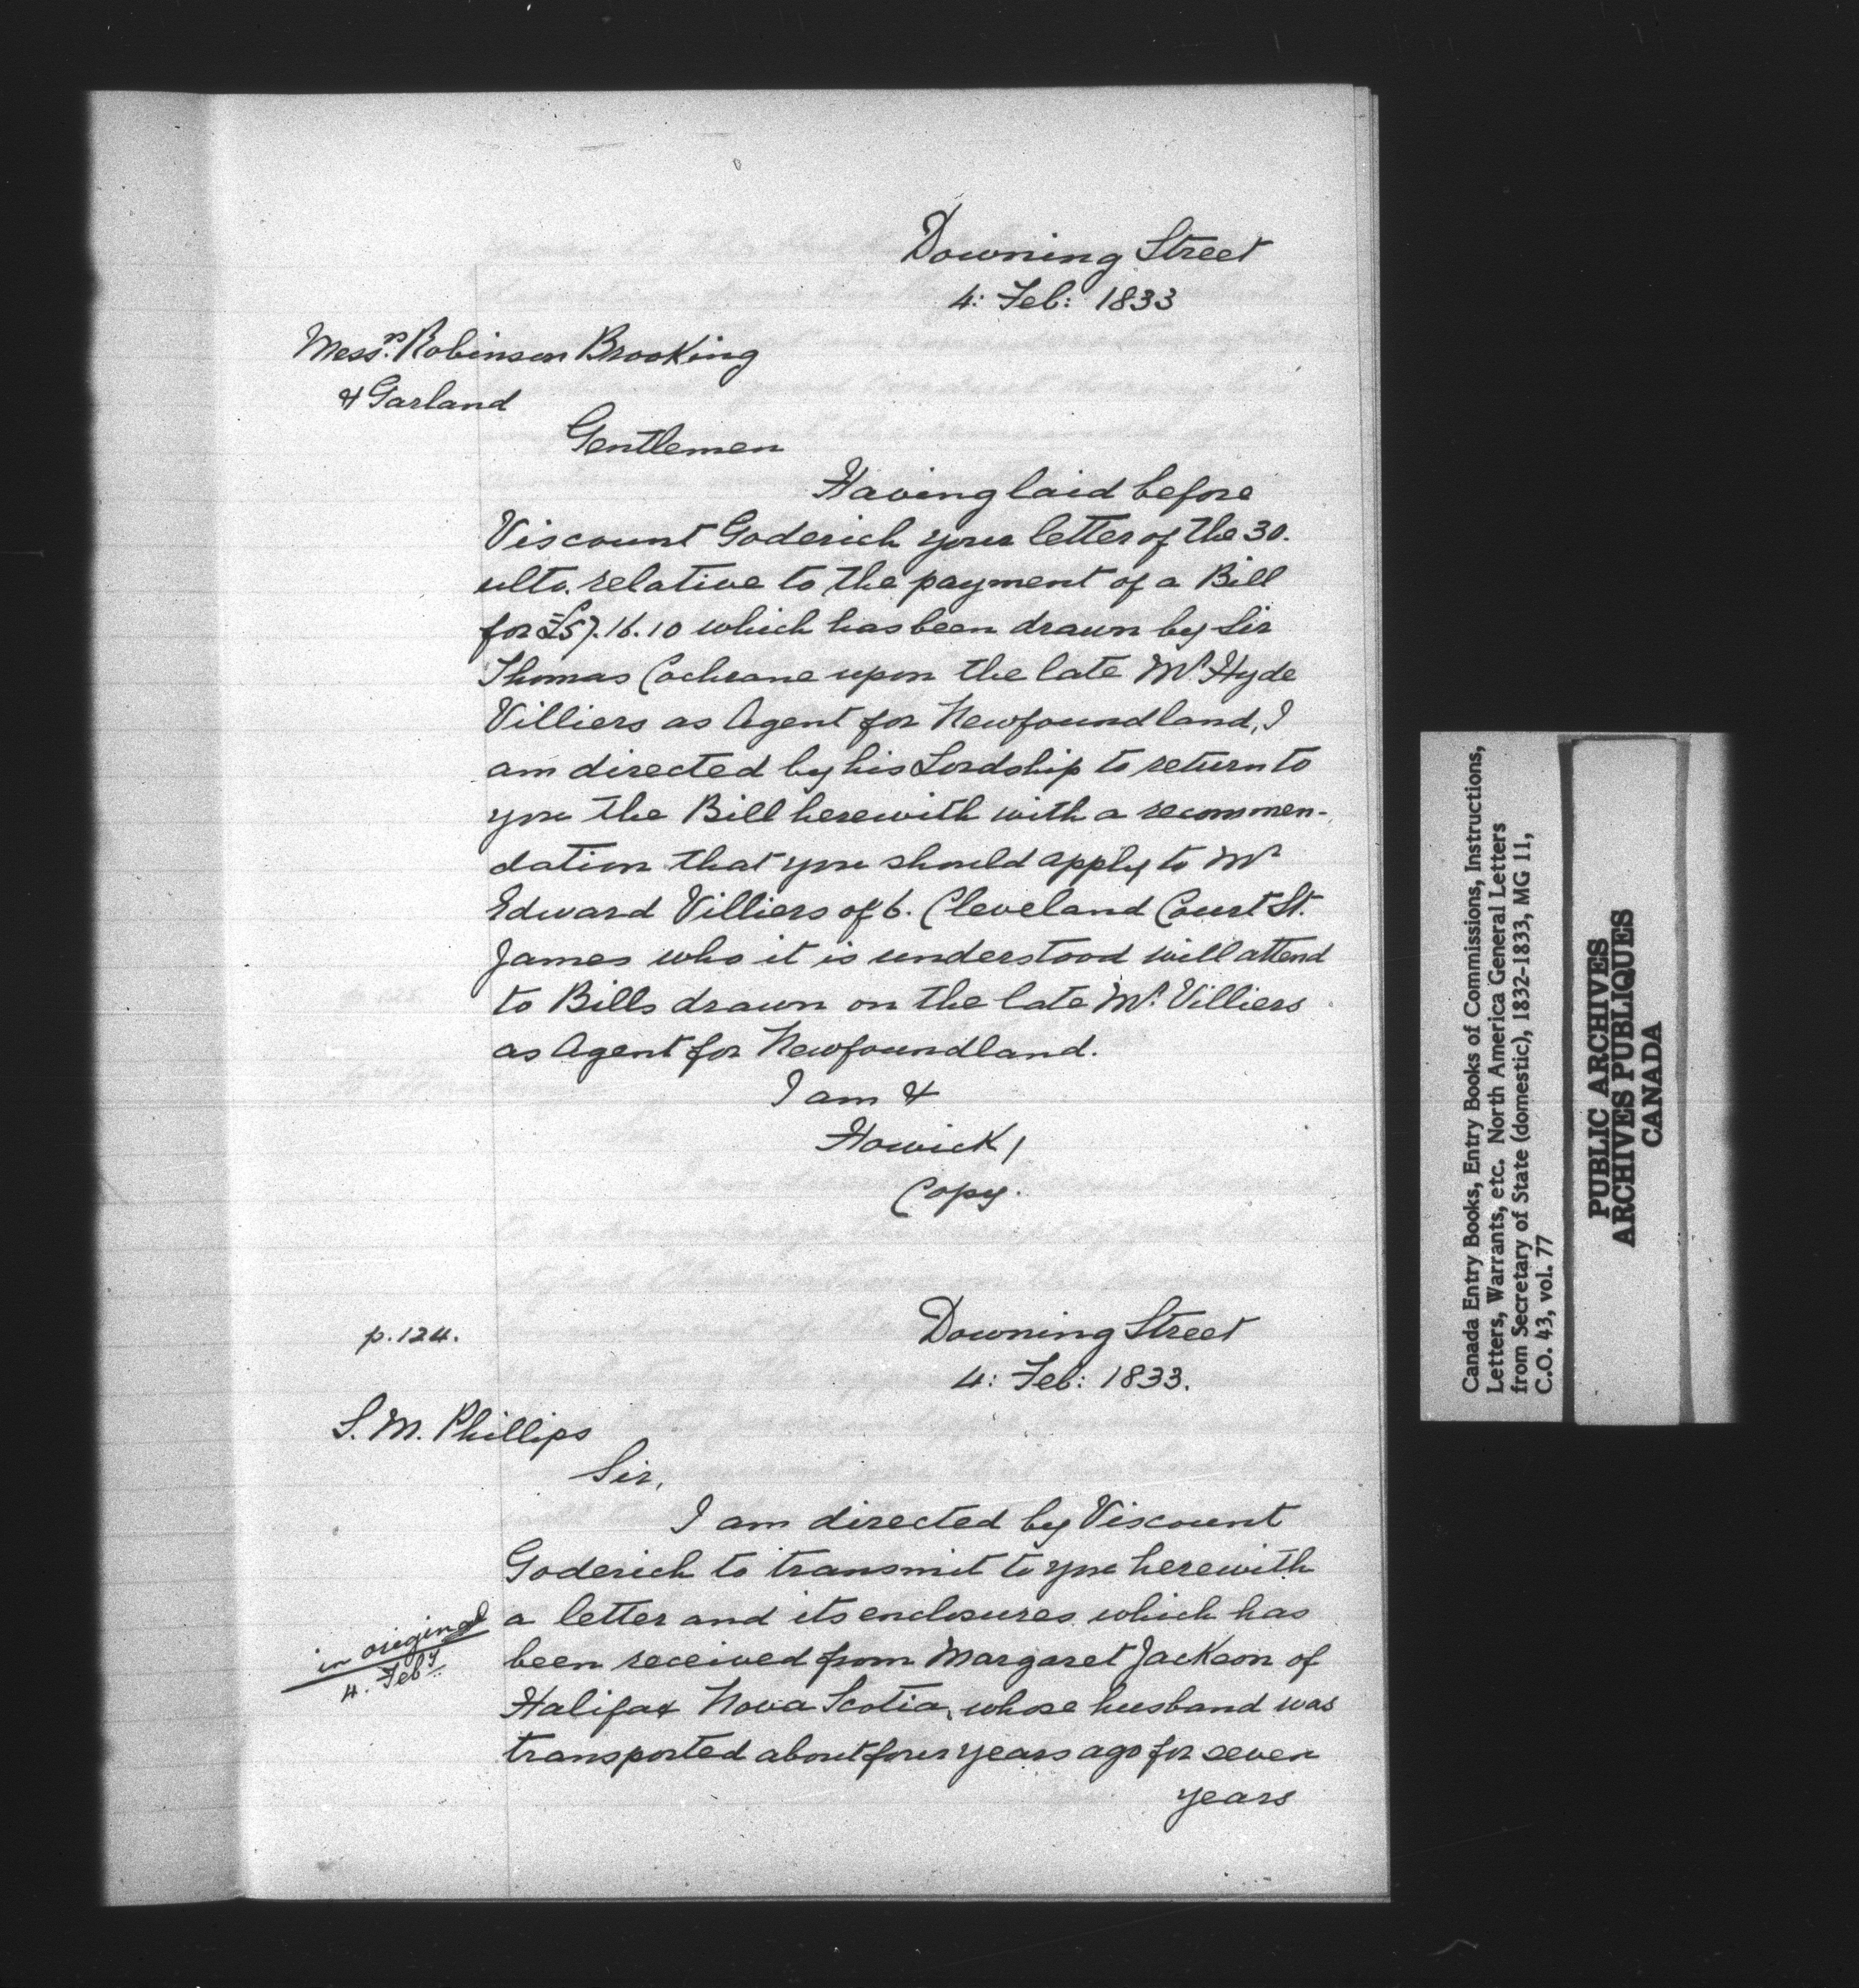 Downing Street
4: Feb: 1833
Messrs. Robinson Brooking
& Garland
Gentlemen
Having laid before
Viscount Goderich your letter of the 30.
ulto. relative to the payment of a Bill
for £57.16.10 which has been drawn by Sir
Thomas Cochrane upon the late Mr. Hyde
Villiers as Agent for Newfoundland, I
am directed by his Lordship to return to
you the Bill herewith with a recommen-
dation that you should apply to Mr
Edward Villiers of 6. Cleveland Court St.
James who it is understood will attend
to Bills drawn on the late Mr. Villiers
as Agent for Newfoundland.
I am &
Howick/
Copy.
p. 124.
Downing Street
4: Feb: 1833.
S. M. Phillips
Sir,
I am directed by Viscount
Goderich to transmit to you herewith
a letter and its enclosures which has
in original
4. Feby.
been received from Margaret Jackson of
Halifax Nova Scotia, whose husband was
transported about four years ago for seven
years
Canada Entry Books, Entry Books of Commissions, Instructions,
Letters, Warrants, etc. North America General Letters
from Secretary of State (domestic), 1832-1833, MG 11,
C.O. 43, vol. 77
PUBLIC ARCHIVES
ARCHIVES PUBLIQUES
CANADA